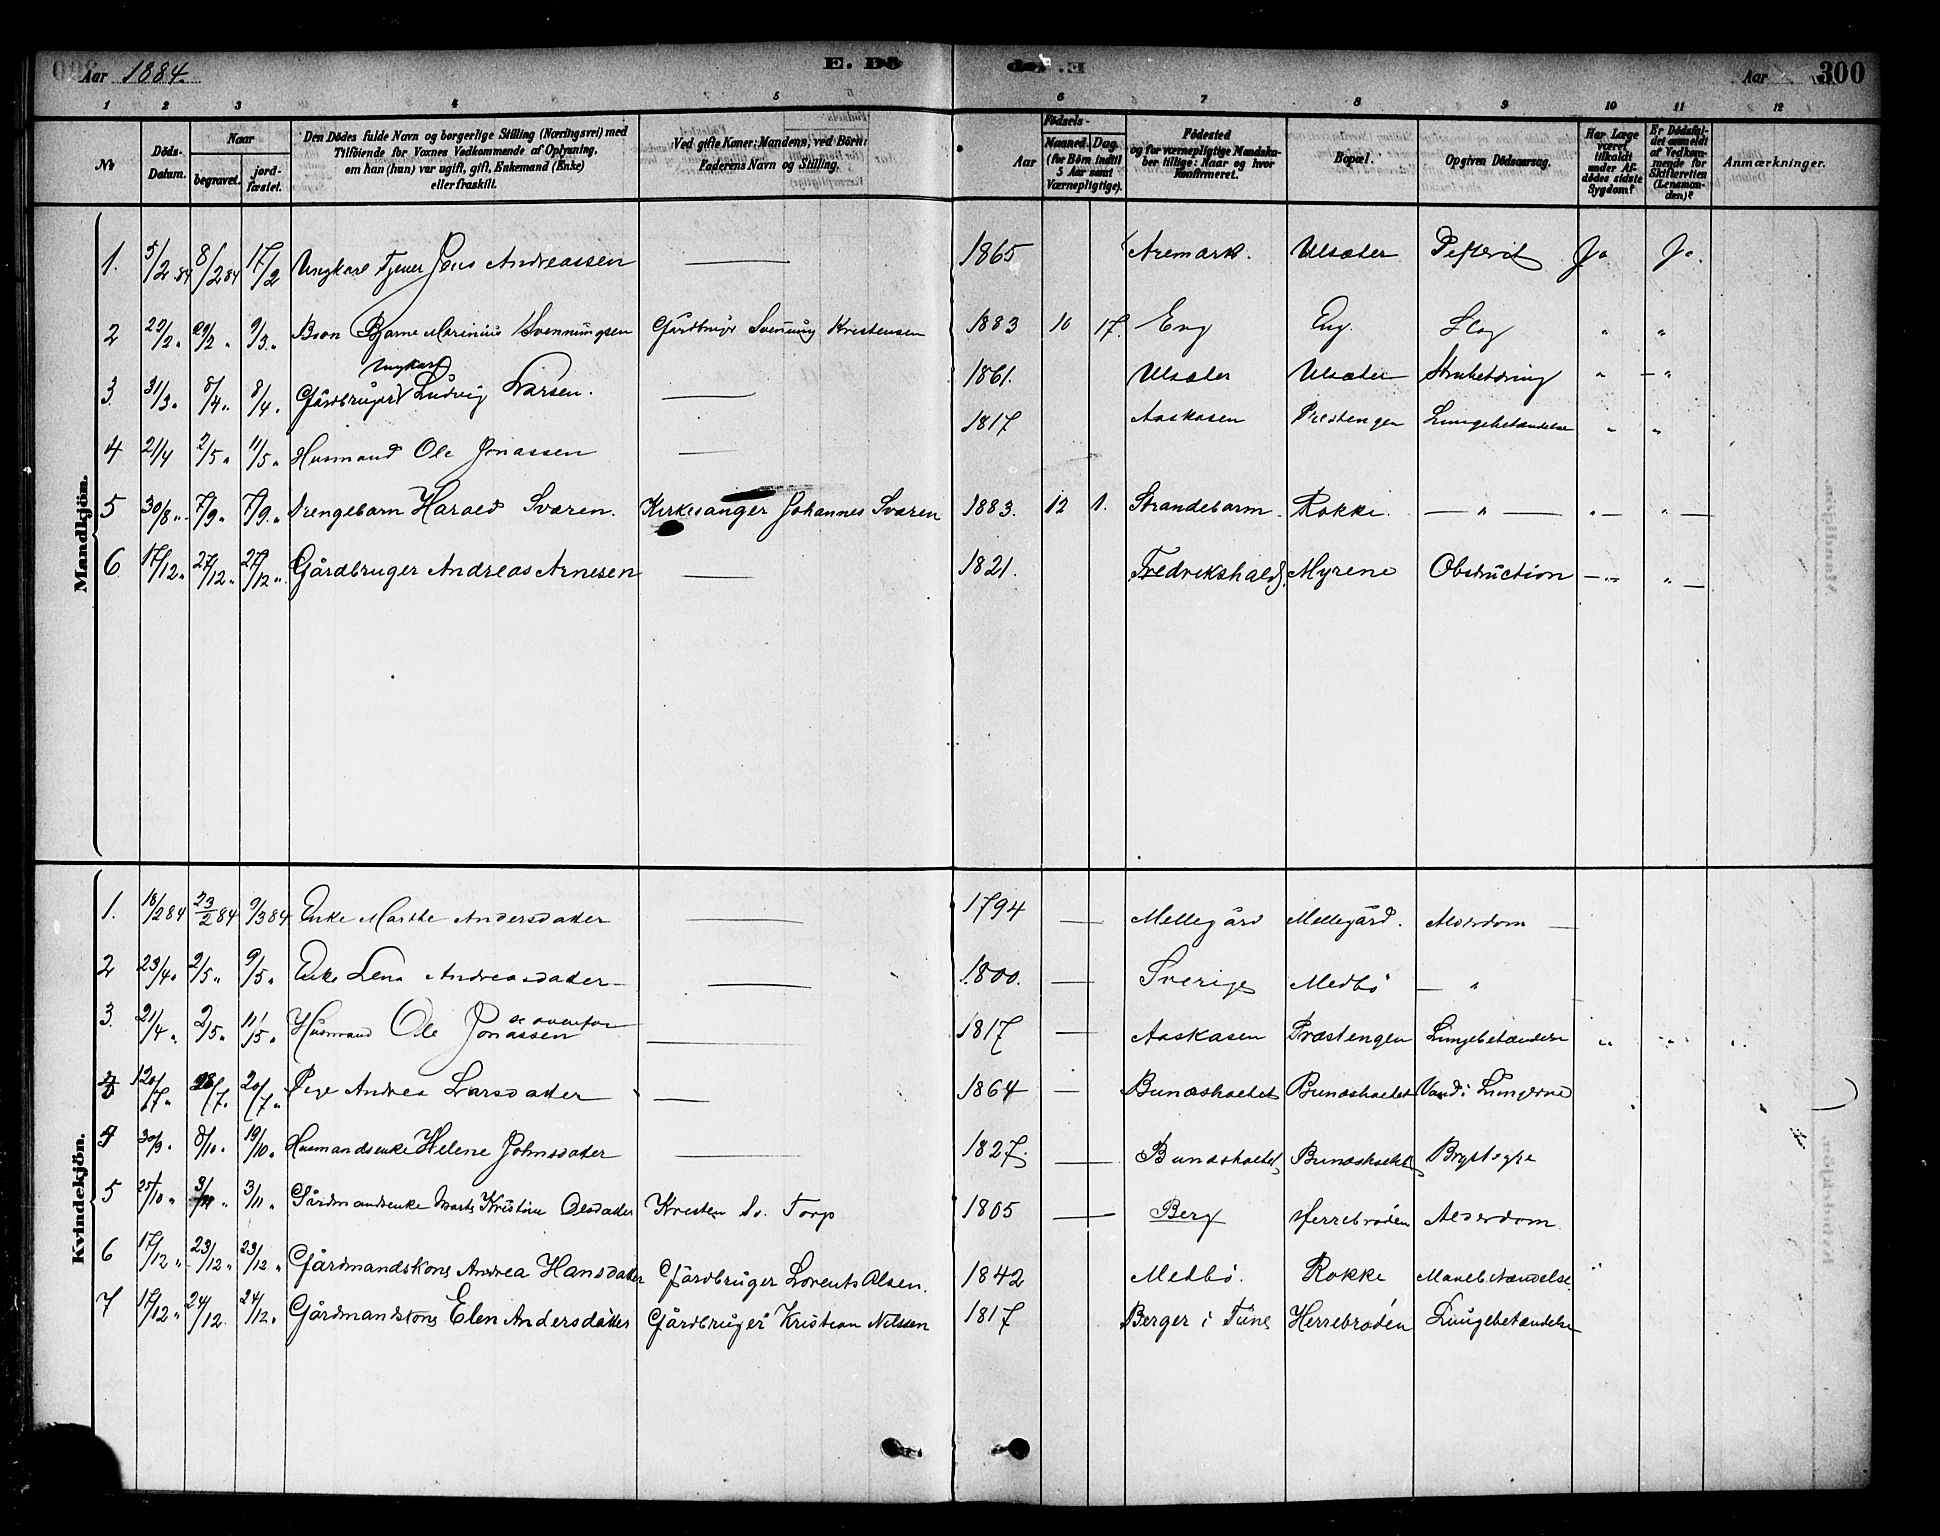 Aar 1884.
E. Dö
de. E.
Aar
300
1 2 3 4 5 6 7 8 9 10 11 12
No
Döds-Datum.
Naar
begravet.
jord-fæstet.
Den Dödes fulde Navn og borgerlige Stilling (Næringsvei) med
Tilföiende for Voxnes Vedkommende af Oplysning,
om han (hun) var ugift, gift, Enkemand (Enke)
eller fraskilt.
Ved gifte Koner: Mandens, ved Börn:
Faderens Navn og Stilling.
Födsels-
Aar
Maaned. Dag.
(for Börn indtil
5 Aar samt
Værnepligtige).
Födested
og for værnepligtige Mandska-
ber tillige: Naar og hvor
Konfirmeret.
Bopæl.
Opgiven Dödsaarsag.
Har Læge
været
tilkaldt
under Af-
dödes sidste
Sygdom?
Er Dödsfal-
det anmeldt
af Vedkom-
mende for
Skifteretten
(Lensman-
den)?
Anmærkninger.
Mandkjön.
1. 5/2 84 8/2 84 17/2 Ungkarl Tjener Jens Andreassen — 1865 Aremark. Ulsæter Ja Ja.
2 29/2 " 9/3 " Barn Bjarne Marinius Svenningsen Gårdbruger Svenning Kristensen 1883 10 17. Eng Eng. " "
Ungkarl
3. 31/3 " 8/4 " 8/4 " Gårdbruger Ludvig Larsen. — 1861. Ulsæter Ulsæter Strubetæring " — "
4 21/4 2/5 " 11/5 " Husmand Ole Jonassen — 1817 Aaskasen Prestengen Lungebetændelse " "
5 30/8 " 7/9 " 7/9 " Drengebarn Harald Sværen. Kirkesanger Johannes Sværen 1883. 12 1. Strandebarm Rokke. — " — " — " —
6 17/12 " 27/12 " 27/12 " Gårdbruger Andreas Arnesen — 1821. Fredrikshald. Myrene Obstruction — " — " —
Kvindekjön.
1. 18/2 84 23/2 84 9/3 84 Enke Marthe Andersdatter — 1794 — Mellegård Mellegård. Alderdom —
2 23/4 " 2/5 " 9/5 " Enke Lena Andreasdatter — — 1800. — Sverige Medbö — "
3. 21/4 " 2/5 " 11/5 " Husmand Ole Jonassen se ovenfor — 1817 — Aaskasen Præstengen Lungebetændelse " " "
3 20/7 " Pige Andrea Larsdatter — 1864 — Bunæsholtet Bunæsholtet Vand i Lungerne
4 30/9 " 8/10 " 19/10 " Husmandsenke Helene Johnsdatter — 1827. — Bunæsholtet Bunæsholtet Brystsyge
5 25/10 " 3/11 " 3/11 " Gårdmandsenke Marte Kristine Olsdatter Kristen Torp 1805 — Berg Herrebröden Alderdom
6 17/12 " 23/12 " 23/12 " Gårdmandskone Andrea Hansdatter Gårdbruger Lorents Olsen. 1842 Medbö. Rokke Mavebetændelse "
7 17/12 " 24/12 24/12 " Gårdmandskone Elen Andersdatter Gårdbruger Kristian Nilssen 1817 Berger i Tune Herrebröden Lungebetændelse